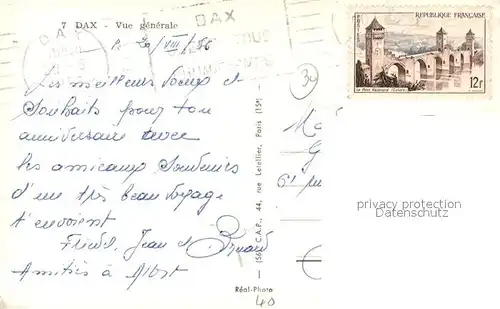 7 DAX - Vue générale
DAX
DAX
le 20/VIII/56
RÉPUBLIQUE FRANÇAISE
POSTES
Le Pont Valentré (Cahors)
12f
Les meilleurs vœux et
souhaits pour ton
anniversaire avec
les amicaux souvenirs
d'un très beau voyage
t'envoient
Jean et Bernard
Amitiés à Albert
(56) C.A.P., 44, rue Letellier, Paris (15e)
Réal-Photo
40
privacy protection
Datenschutz